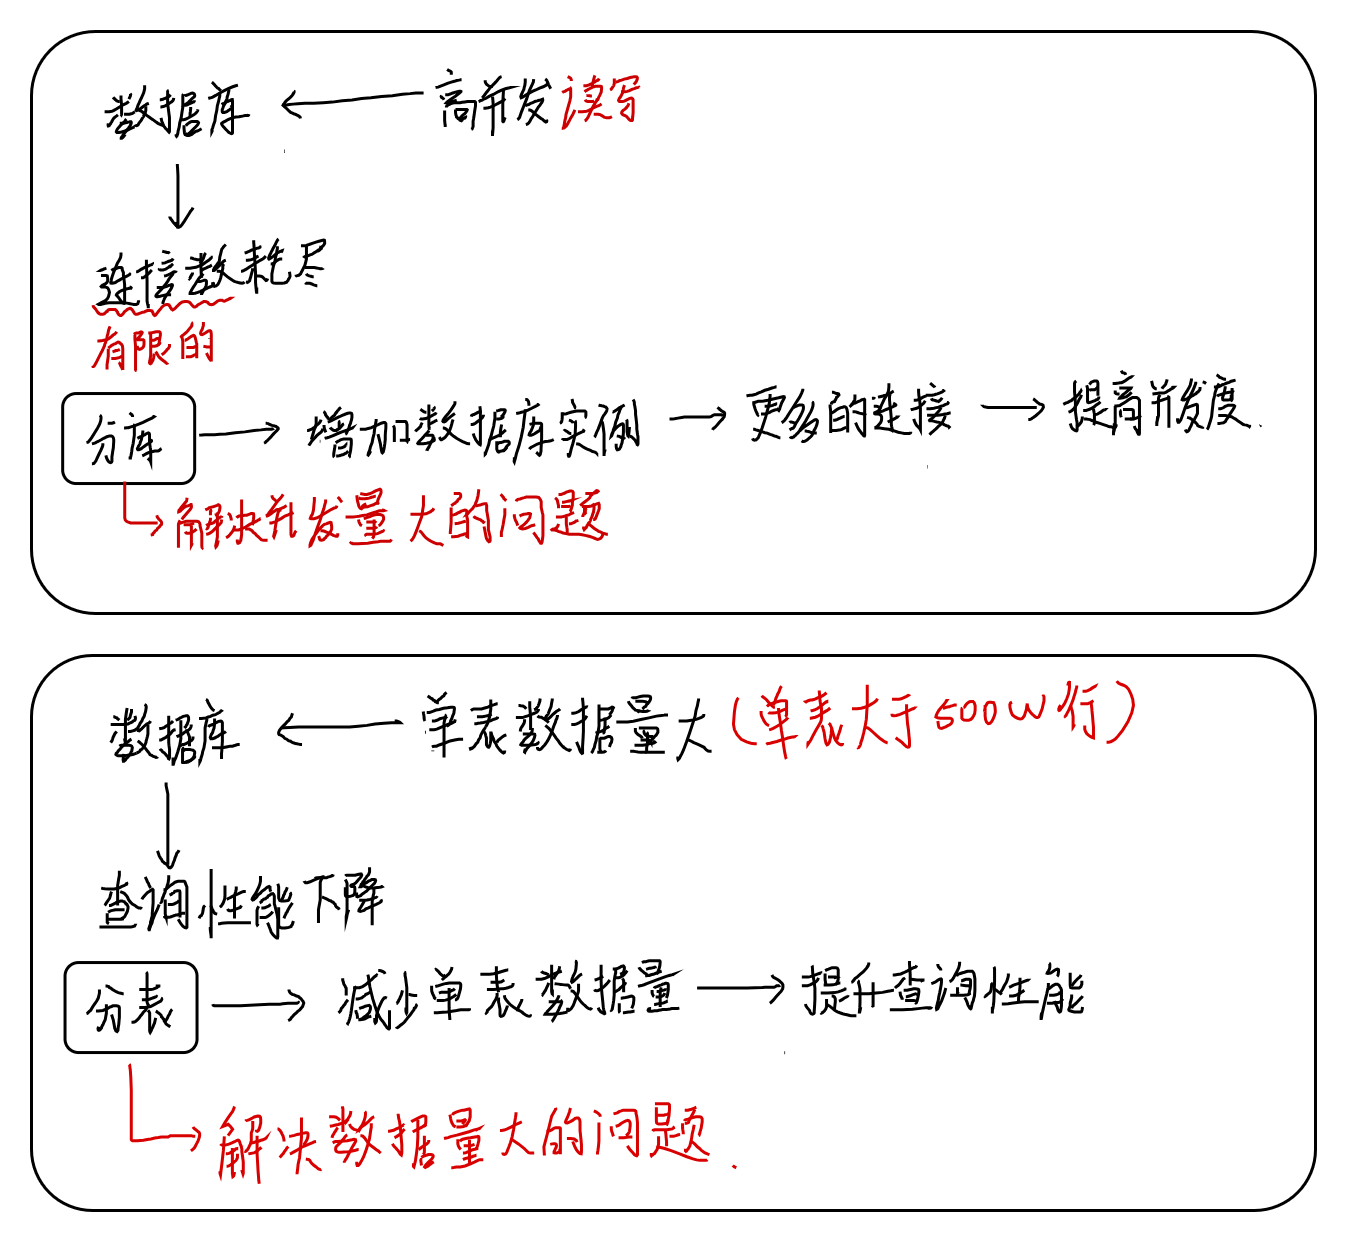 数据库 ← 高并发读写
连接数耗尽
有限的
分库 → 增加数据库实例 → 更多的连接 → 提高并发度.
解决并发量大的问题
数据库 ← 单表数据量大(单表大于500W行)
查询性能下降
分表 → 减少单表数据量 → 提升查询性能
解决数据量大的问题.